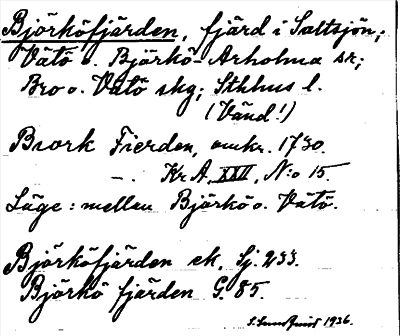 Björköfjärden, fjärd i Saltsjön;
Vätö o. Björkö-Arholma sr;
Bro o. Vätö skg; Sthhus l.
(Vänd!)
Biork Fierden, omkr. 1730.
—. Kr A, XXII, N:o 15.
Läge: mellan Björkö o. Vätö.
Björköfjärden ek, Sj. 233.
Björkö fjärden G. 85.
1936.